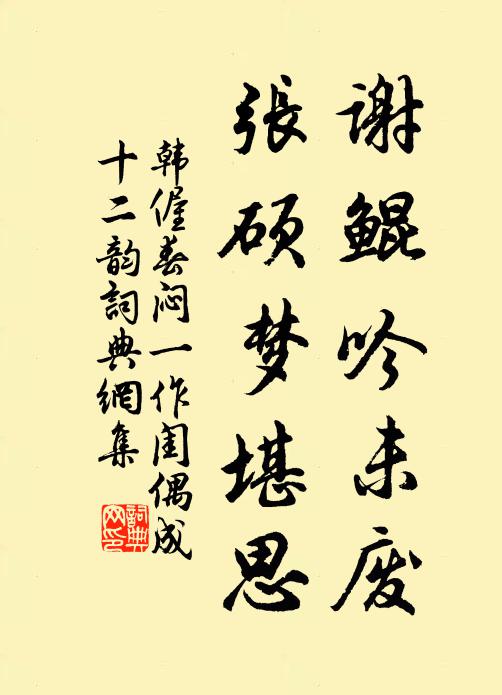 谢鲲吟未废
張硕梦堪思
韩偓春闷一作闺偶成
十二韵詞典網集
詞典网印